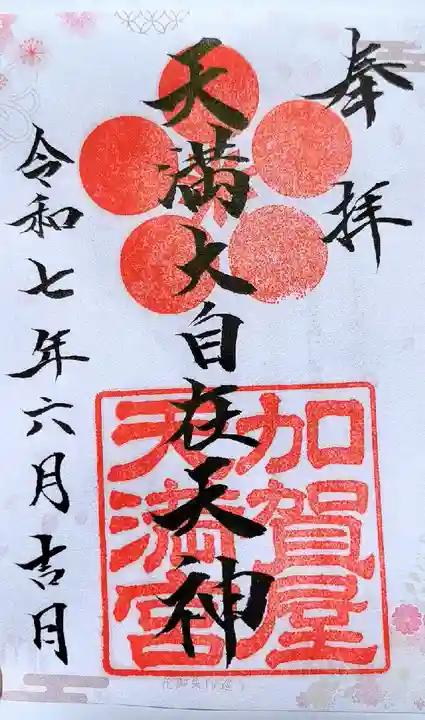 奉拝
天満大自在天神
加賀屋
天満宮
令和七年六月吉月